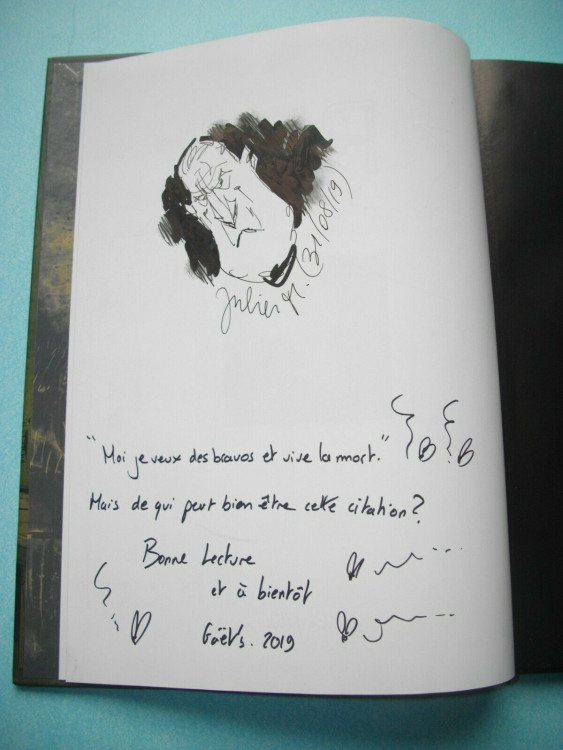 Julien M. (31/08/19)
"Moi je veux des bravos et vive la mort."
Mais de qui peut bien être cette citation?
Bonne Lecture
et à bientôt
Gaët's. 2019